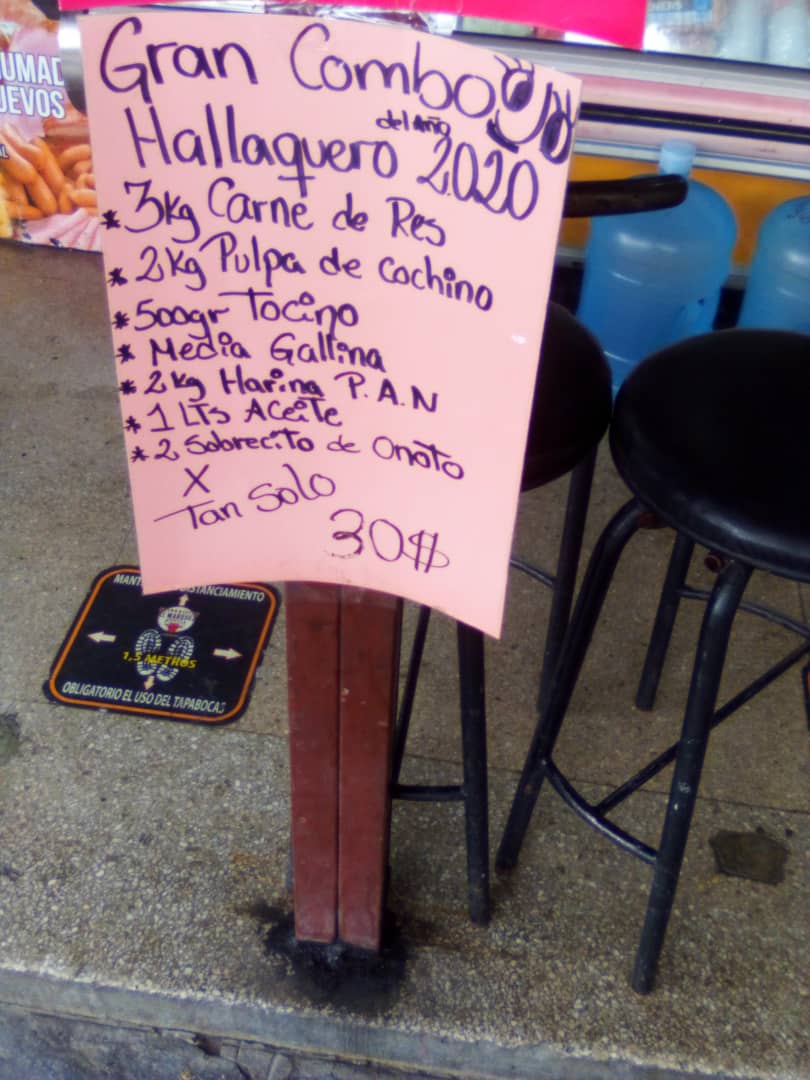 Gran Combo
Hallaquero del Año 2020
* 3kg Carne de Res
* 2kg Pulpa de cochino
* 500gr Tocino
* Media Gallina
* 2kg Harina P.A.N
* 1 LTs Aceite
* 2 Sobrecito de Onoto
X
Tan Solo
30$
1,5 METROS
OBLIGATORIO EL USO DEL TAPABOCAS